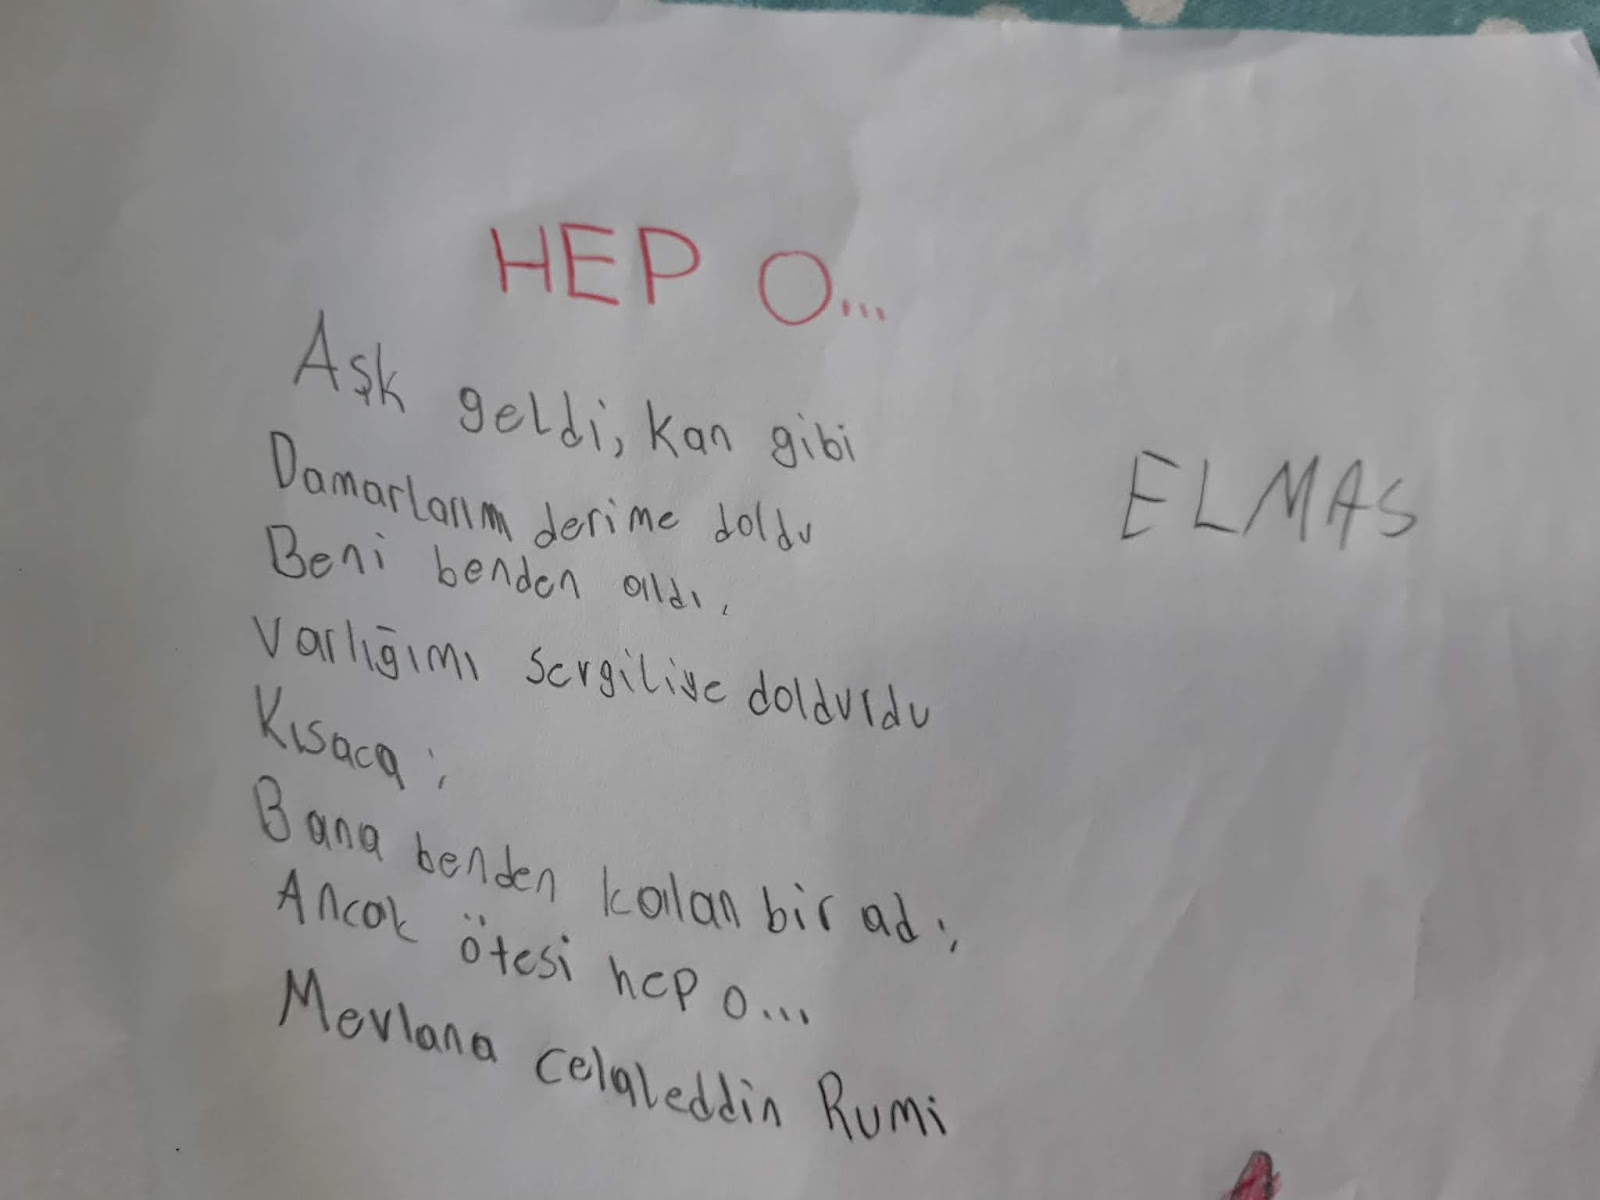 HEP O...
Aşk geldi, kan gibi
Damarlarım derime doldu
Beni benden aldı,
Varlığımı sevgiliye doldurdu
Kısaca ;
Bana benden kalan bir ad ;
Ancak ötesi hep o...
Mevlana Celaleddin Rumi
ELMAS